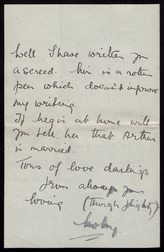 Well I have written you
a screed. This is a rotten
pen which doesn't improve
my writing.
If Meg is at home will
you tell her that Arthur
is married.
Tons of love darling
from always your
loving (though flighty)